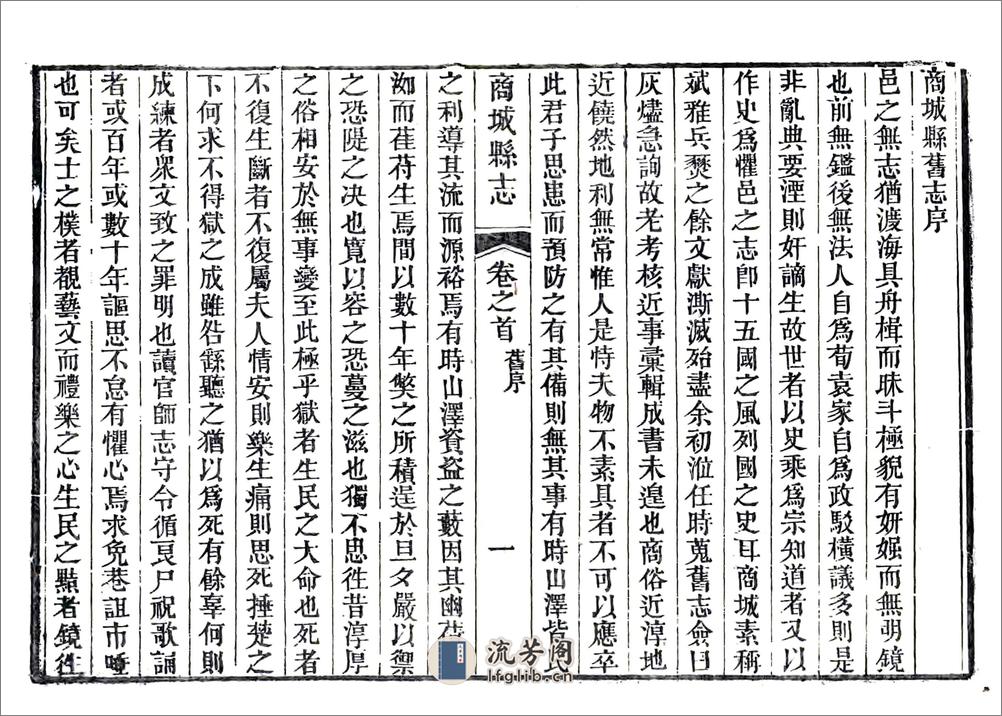 商城縣舊志序
邑之無志猶渡海具舟楫而昧斗極貌有妍媸而無明鏡
也前無鑑後無法人自爲荀袁家自爲政駁橫議多則是
非亂典要湮則奸謫生故世者以史乘爲宗知道者又以
作史爲懼邑之志卽十五國之風列國之史耳商城素稱
斌雅兵燹之餘文獻澌滅殆盡余初涖任時蒐舊志僉曰
灰燼急詢故老考核近事彙輯成書未遑也商俗近淳地
近饒然地利無常惟人是恃夫物不素具者不可以應卒
此君子思患而預防之有其備則無其事有時山澤皆民
商城縣志
卷之首
舊序
一
之利導其流而源裕焉有時山澤資盜之藪因其幽
洳而萑苻生焉間以數十年獘之所積逞於旦夕嚴以禦
之恐隄之决也寬以容之恐蔓之滋也獨不思徃昔淳厚
之俗相安於無事變至此極乎獄者生民之大命也死者
不復生斷者不復屬夫人情安則樂生痛則思死捶楚之
下何求不得獄之成雖咎繇聽之猶以爲死有餘辜何則
成練者衆文致之罪明也讀官師志守令循良尸祝歌誦
者或百年或數十年謳思不怠有懼心焉求免巷詛市唾
也可矣士之樸者覩藝文而禮樂之心生民之黠者鏡徃
流芳阁
lfglib.cn